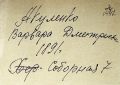 Акуленко
Варвара Дмитриевна
1891.
Соборная 7